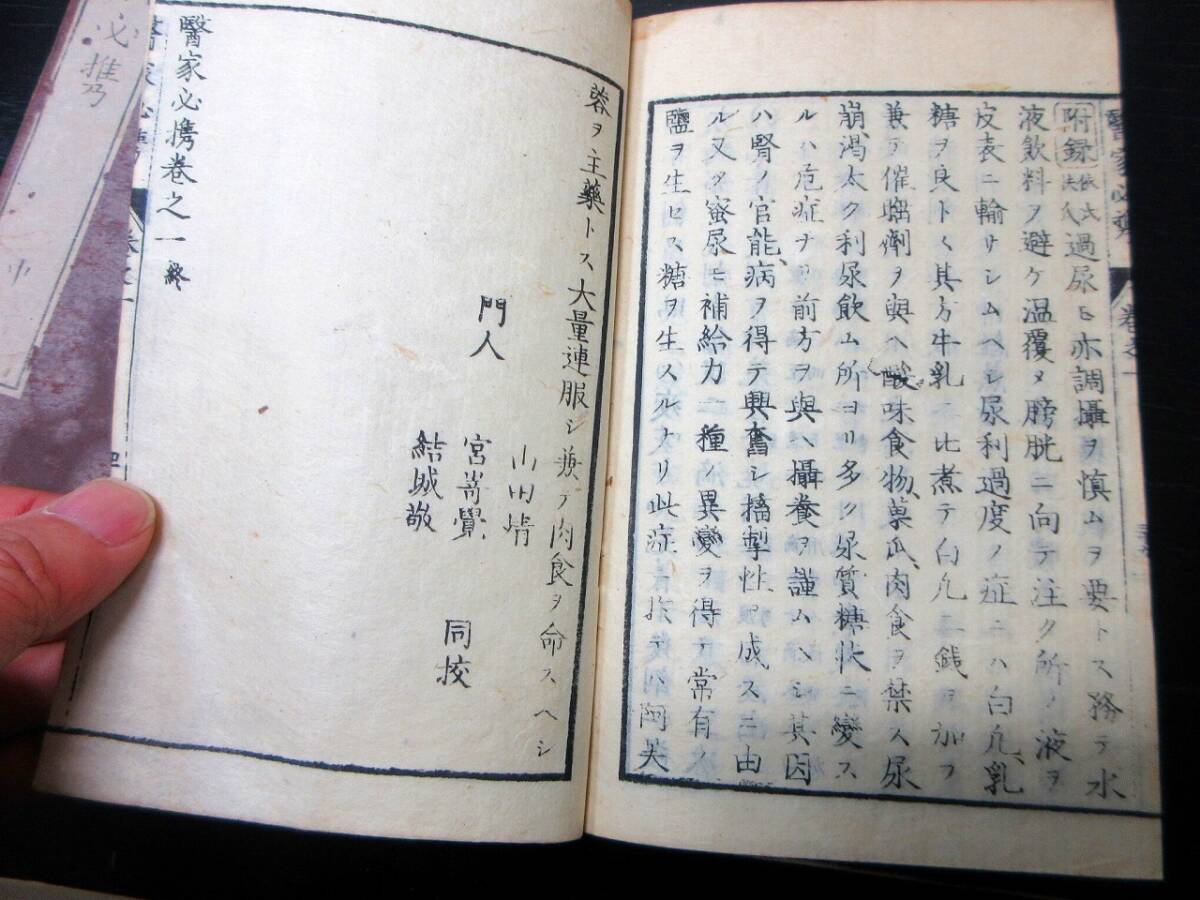 附録 過尿モ亦調攝ヲ慎ムヲ要トス務テ水
液飲料ヲ避ケ温覆メ膀胱ニ向テ注ク所ノ液ヲ
皮表ニ輸サシムヘシ尿利過度ノ症ニハ白凢、乳
糖ヲ良トく其方牛乳一比煮テ白凢二銭ヲ加フ
兼テ催嘔劑ヲ與ヘ酸味食物、菓瓜、肉食ヲ禁ス尿
崩、渇太ク利尿飲ム所ヨリ多ク尿質糖状ニ變ス
ルハ危症ナリ前方ヲ與ヘ攝養ヲ謹ムヘシ其因
ハ腎ノ官能、病ヲ得テ興奮シ搐掣性ト成スニ由
ル又タ蜜尿モ補給力一種ノ異變ヲ得テ常有ノ
鹽ヲ生セス糖ヲ生スルナリ此症ニ於テハ阿芙
蓉ヲ主藥トス大量連服シ兼テ肉食ヲ命スヘシ
門人
山田靖
宮嵜覺
結城敬
同挍
醫家必携卷之一 終
醫家必携
卷之一
必携
中